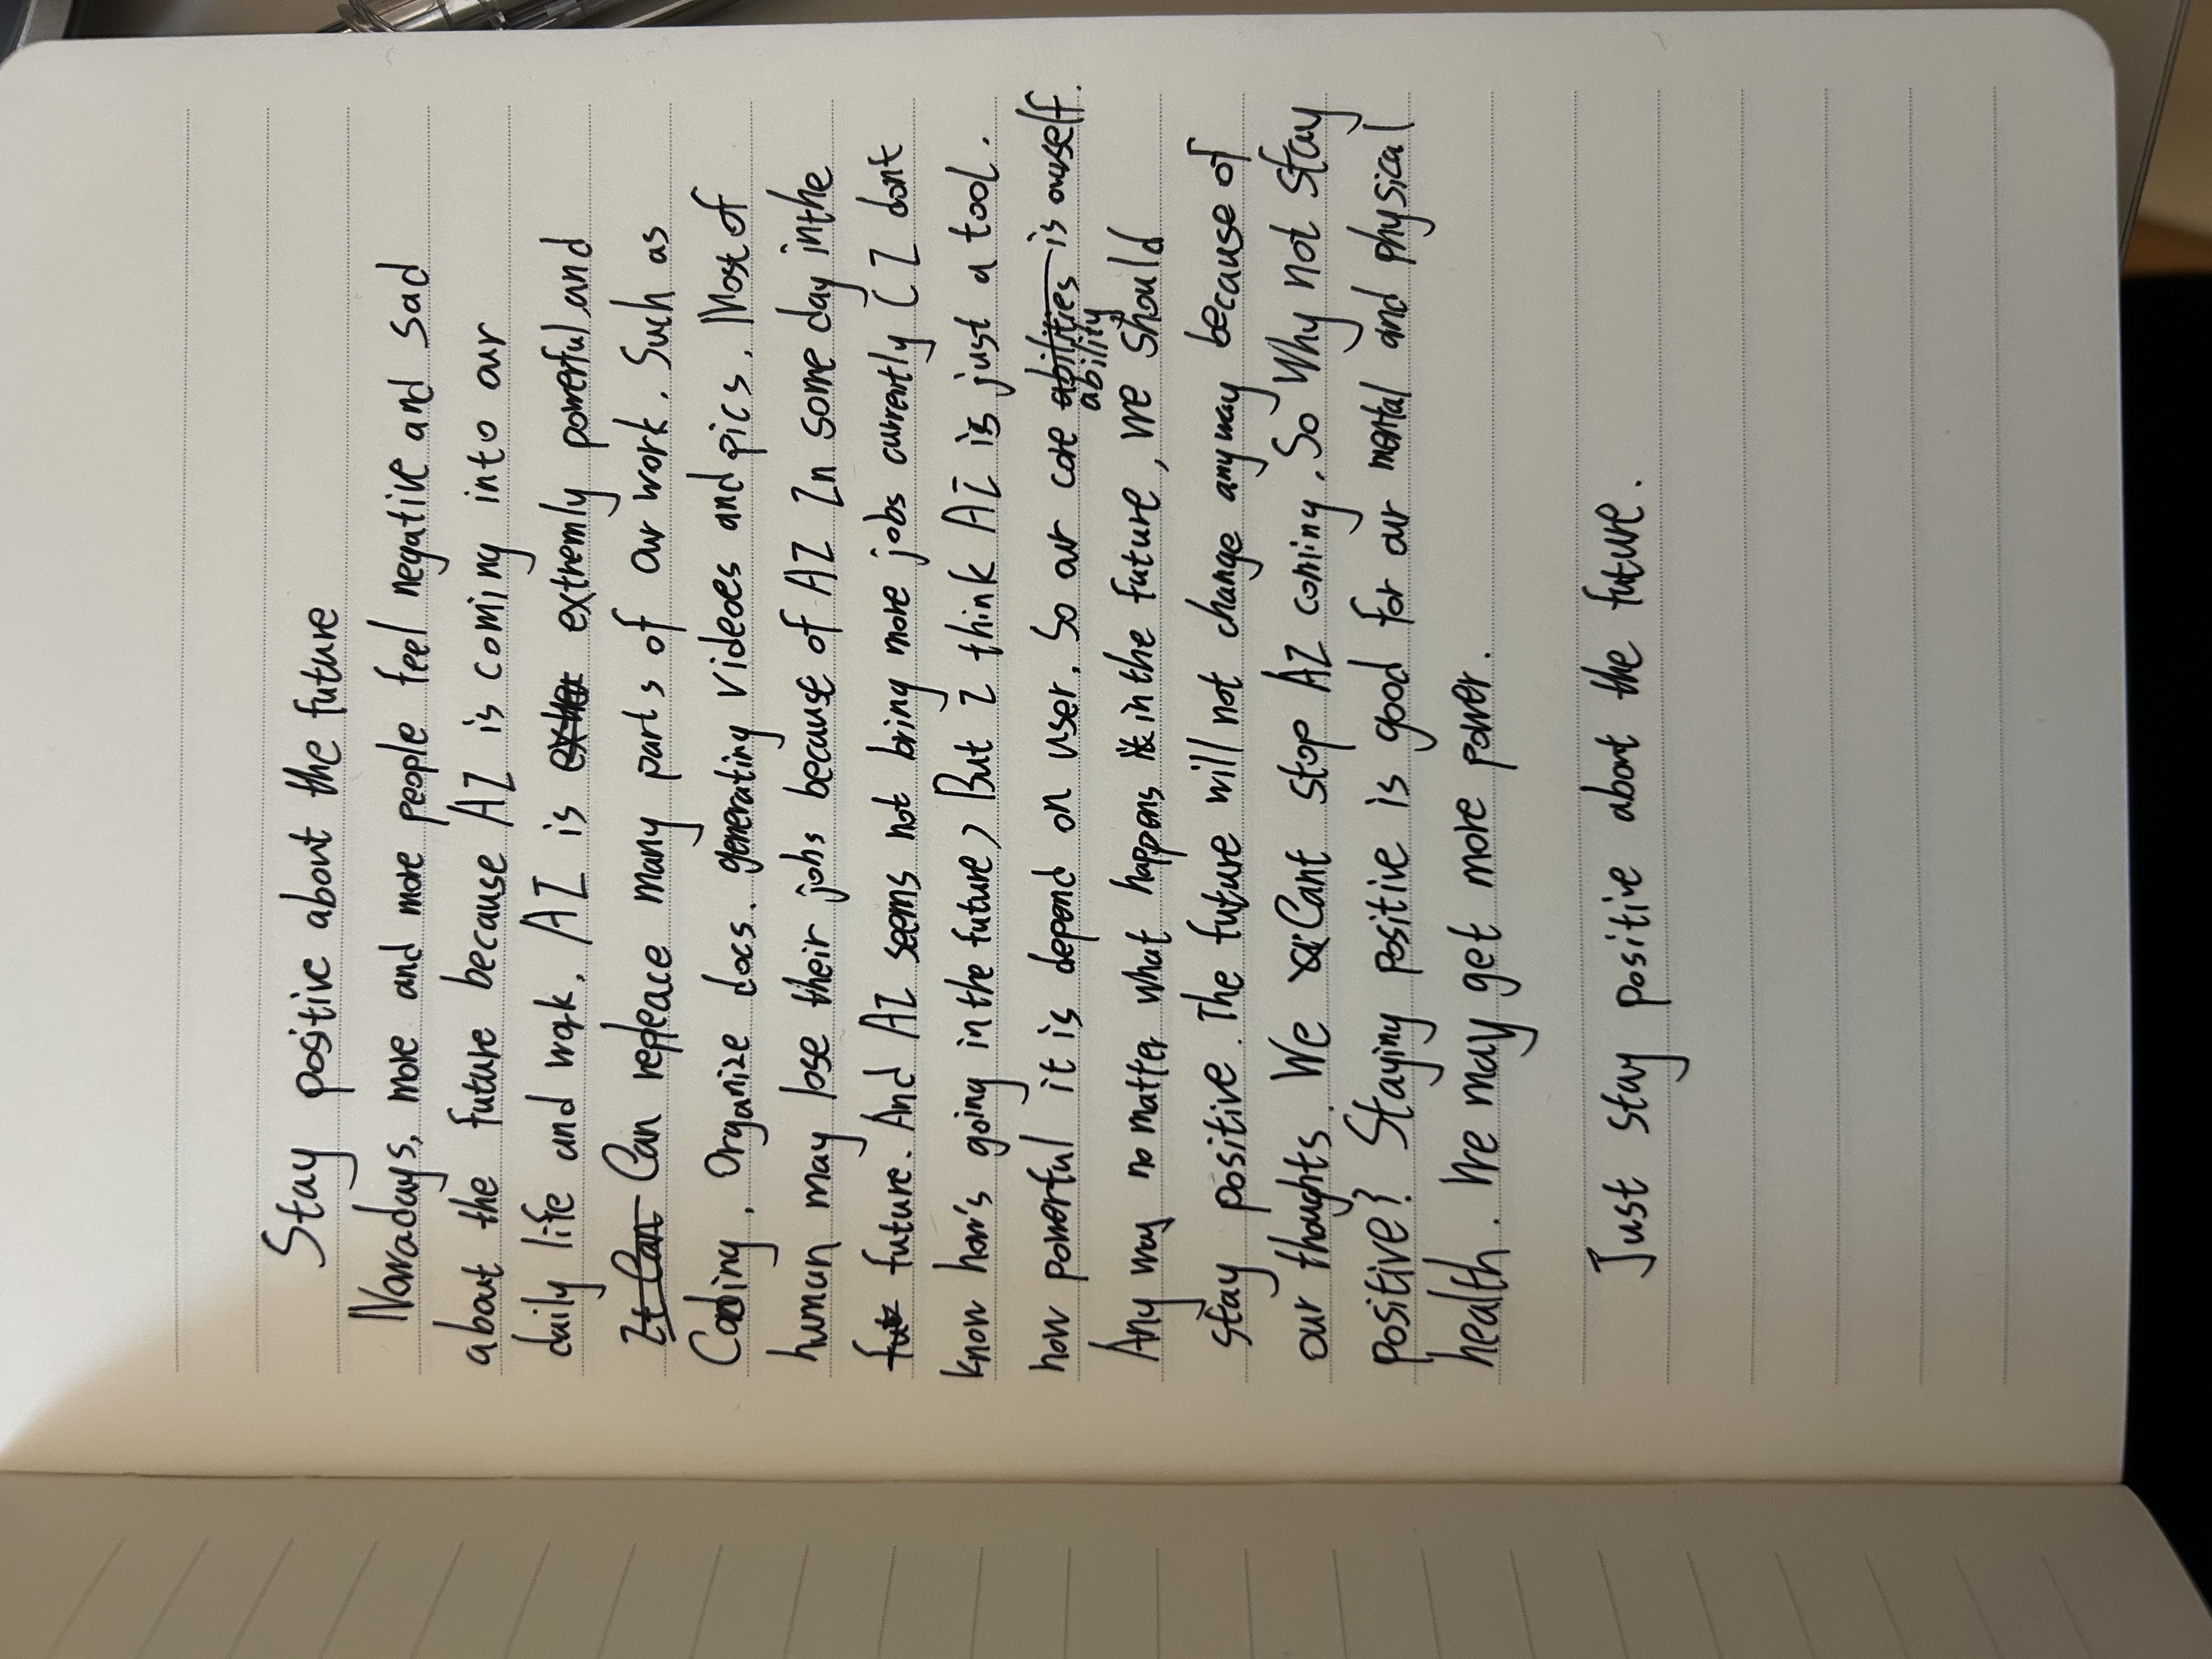 Stay positive about the future
Nowadays, more and more people feel negative and sad
about the future because AI is coming into our
daily life and work. AI is extremly powerful and
It Can Can repleace many parts of our work. Such as
Coding, Organize docs. generating videoes and pics. Most of
human may lose their jobs because of AI In some day in the
fut future. And AI seems not bring more jobs currently (I dont
know how's going in the future) But I think AI is just a tool.
how powerful it is depend on user. So our core abilities ability is ourself.
Any way no matter what happens in the future, we should
stay positive. The future will not change any way because of
our thoughts. We Cant stop AI coming. So Why not stay
positive? Staying positive is good for our mental and physical
health. We may get more power.
Just stay positive about the future.